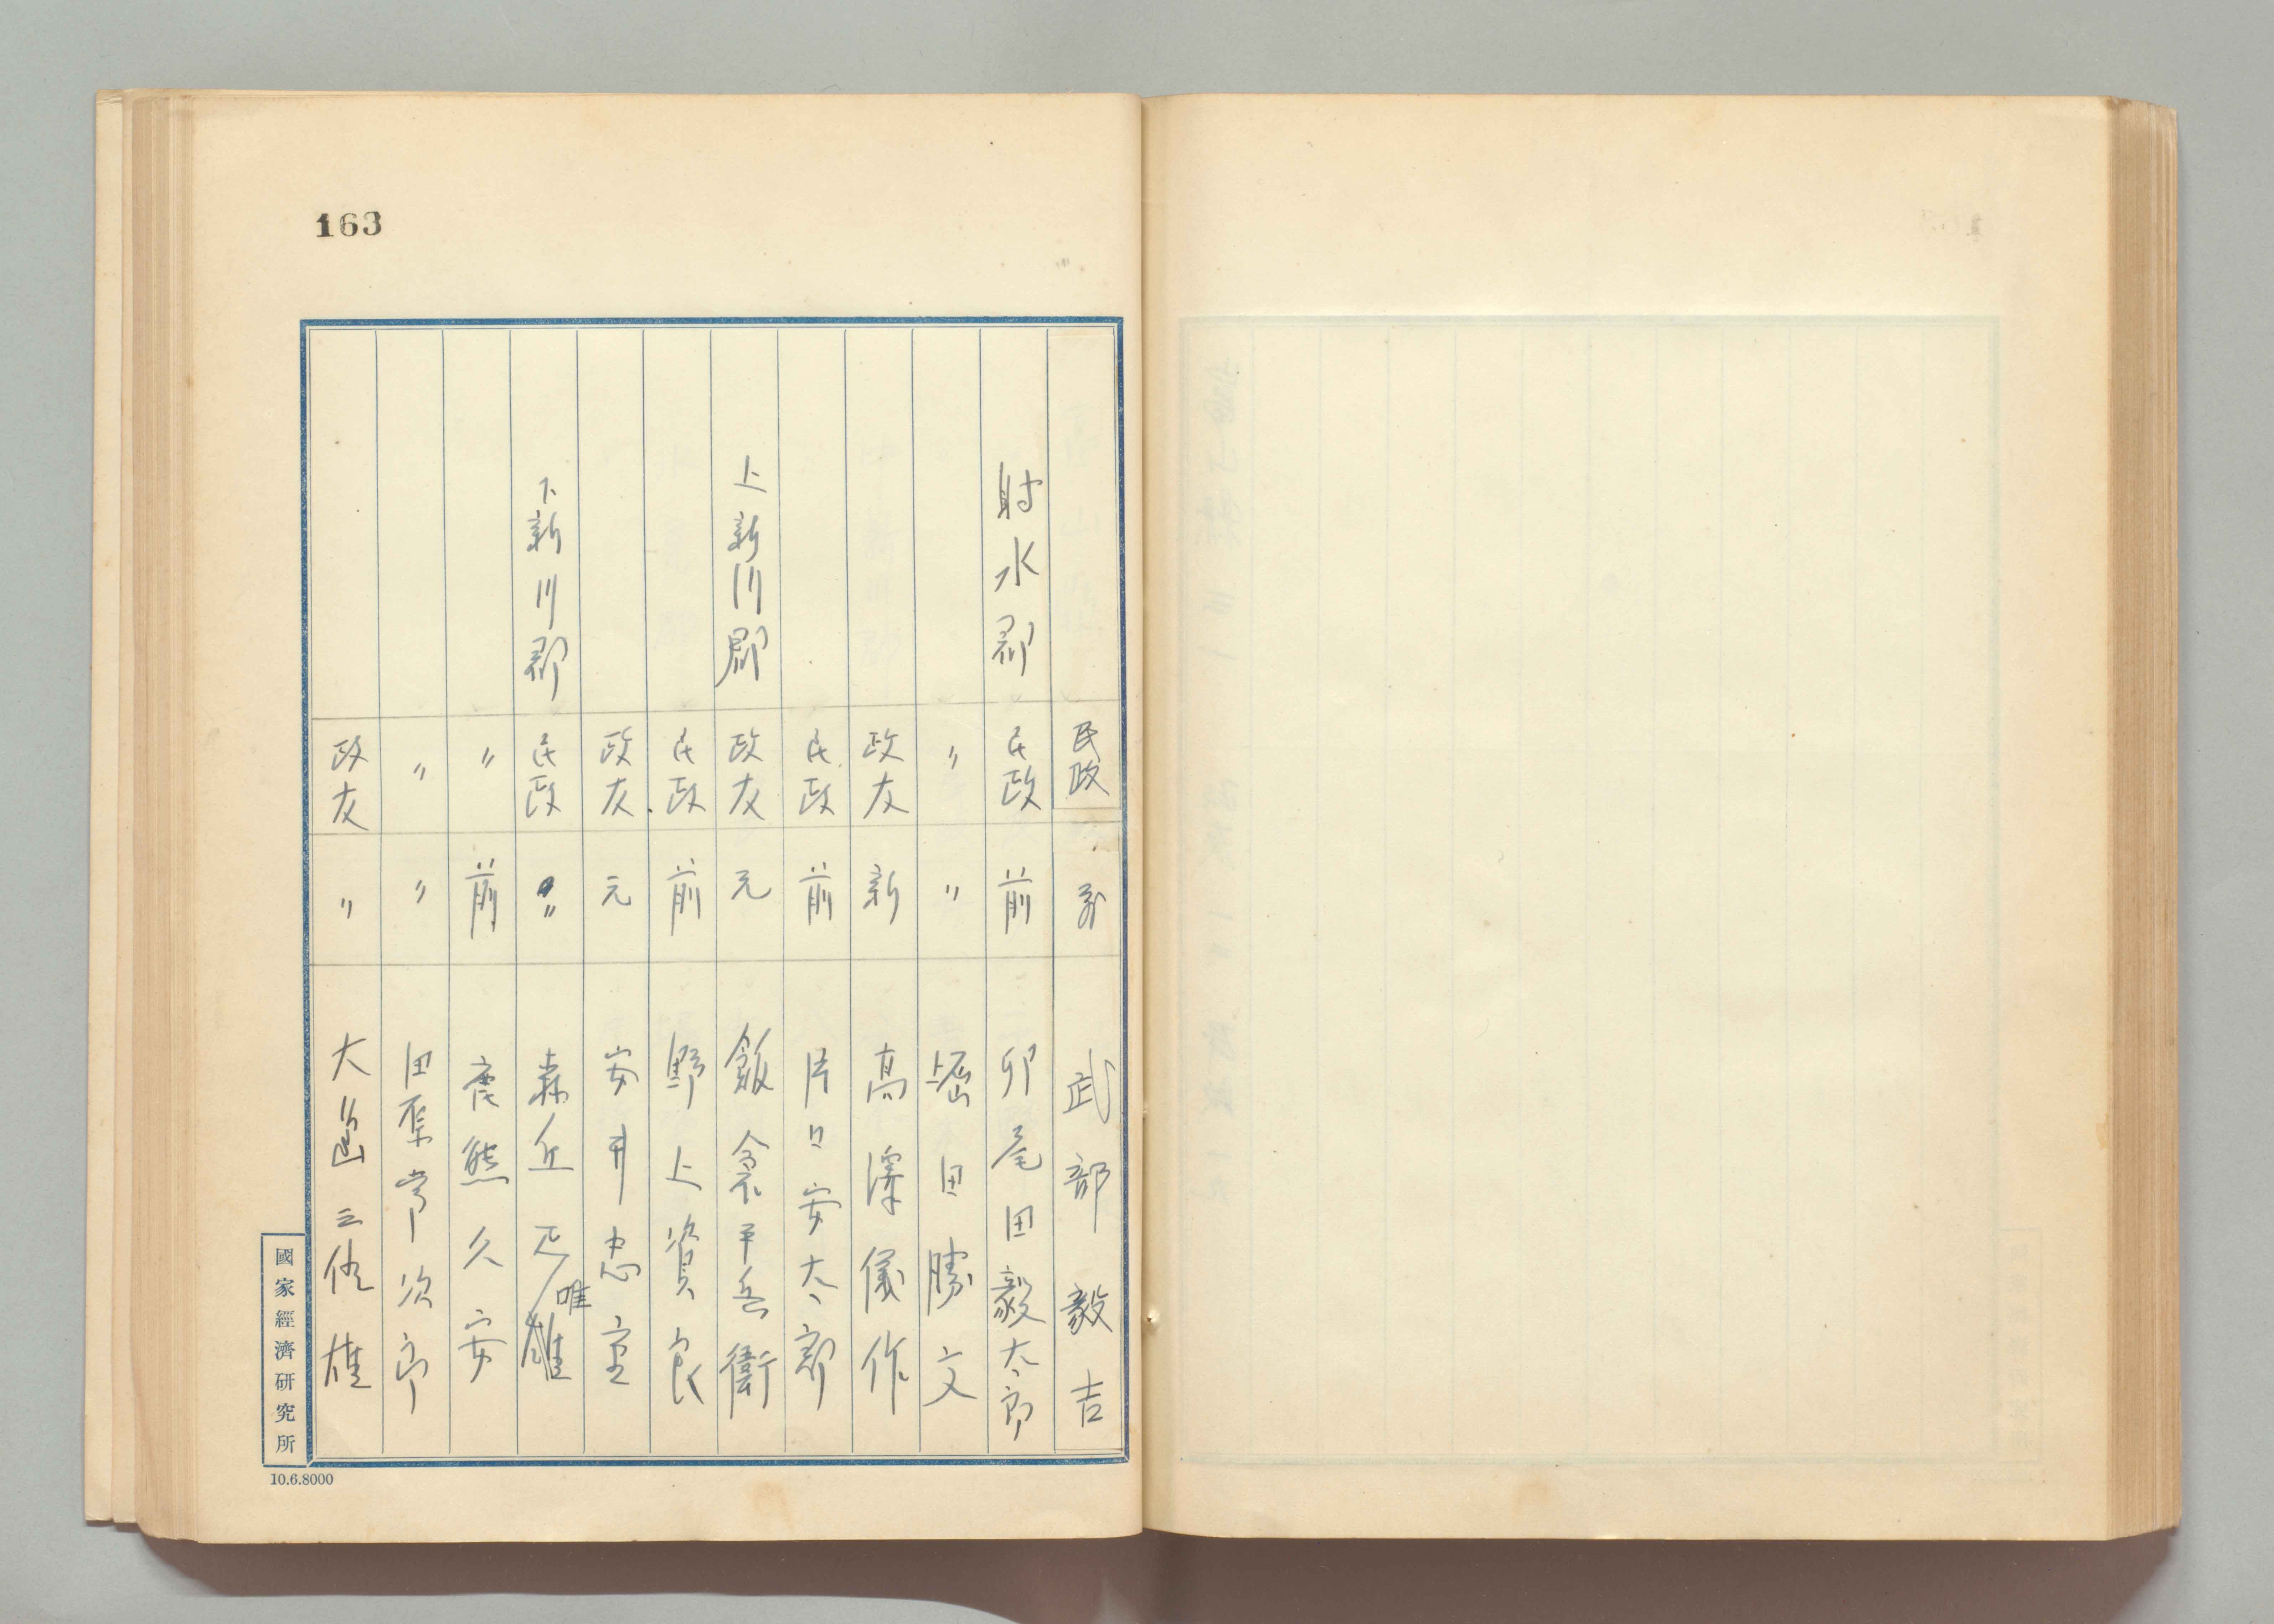 163
民政 新 武部毅吉
射水郡 民政 前 卯尾田毅太郎
〃 〃 堀田勝文
政友 新 高澤儀作
民政 前 片口安太郎
上新川郡 政友 元 飯倉平兵衛
民政 前 野上資良
政友 元 安井忠
下新川郡 民政 〃 森丘正唯
〃 前 鹿熊久安
〃 〃 田原常次郎
政友 〃 大島三雄
國家經濟研究所
10.6.8000